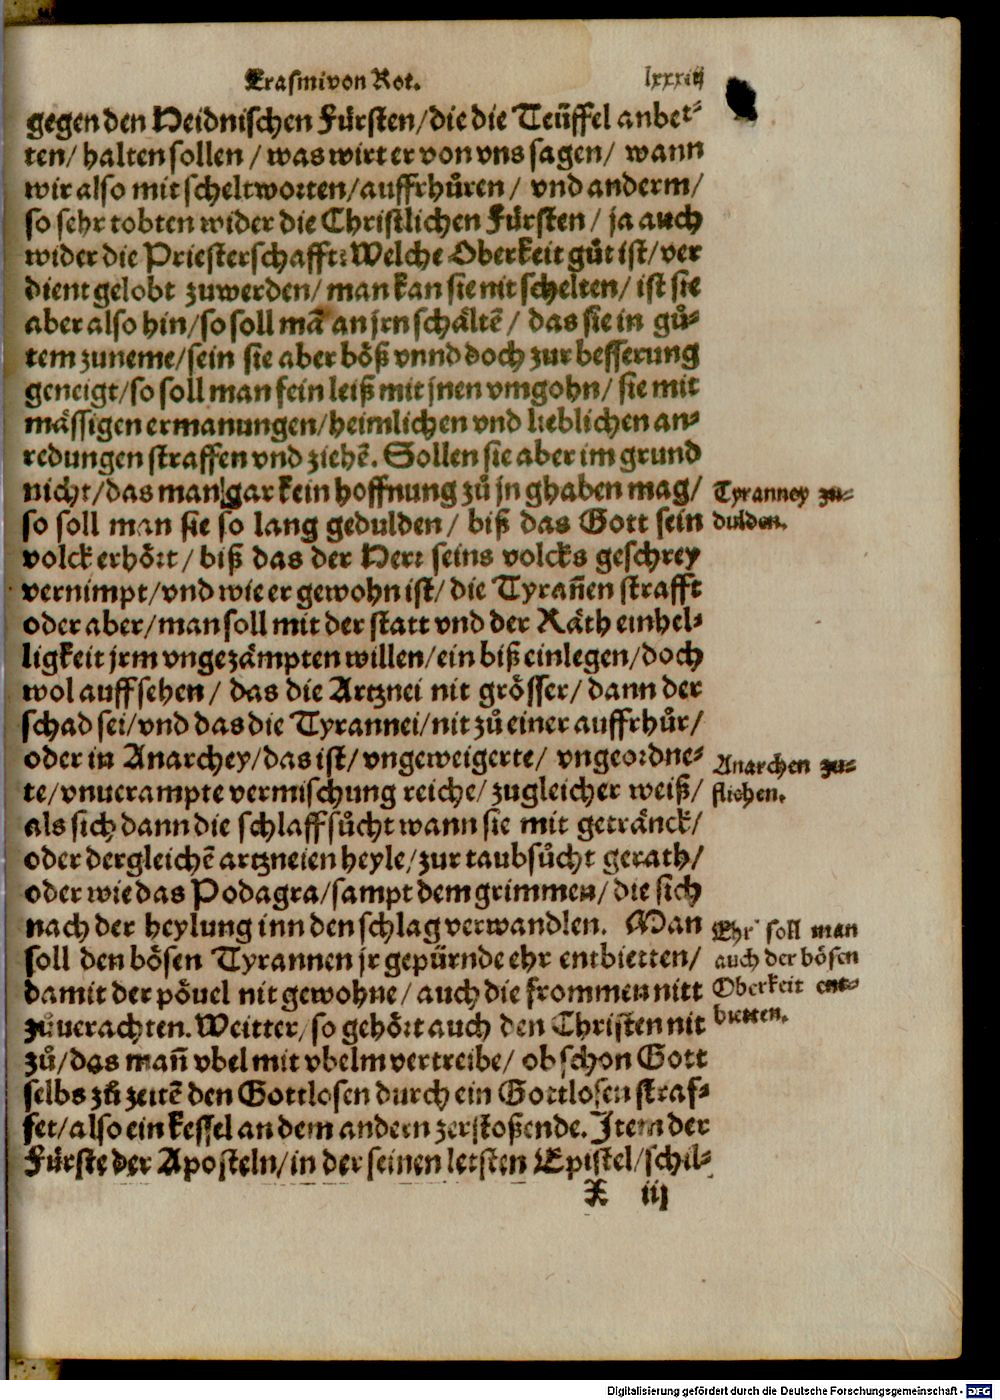 Erasmi von Rot. lxxxiij
gegen den Heidnischen Fürsten/die die Teüffel anbet-
ten/ halten sollen / was wirt er von vns sagen/ wann
wir also mit scheltworten/auffrhůren / vnd anderm/
so sehr tobten wider die Christlichen Fürsten / ja auch
wider die Priesterschafft: Welche Oberkeit gůt ist/ver
dient gelobt zuwerden/ man kan sie nit schelten/ ist sie
aber also hin/so soll mā an jrn schältē / das sie in gů-
tem zuneme/sein sie aber böß vnnd doch zur besserung
geneigt/so soll man fein leiß mit jnen vmgohn/ sie mit
mässigen ermanungen/heimlichen vnd lieblichen an-
redungen straffen vnd ziehē. Sollen sie aber im grund
nicht/das man gar kein hoffnung zů jn ghaben mag/
so soll man sie so lang gedulden / biß das Gott sein
volck erhört / biß das der Herr seins volcks geschrey
vernimpt/vnd wie er gewohn ist/ die Tyrañen strafft
oder aber/man soll mit der statt vnd der Räth einhel-
ligkeit jrm vngezämpten willen/ein biß einlegen/doch
wol auffsehen / das die Artznei nit grösser/ dann der
schad sei/vnd das die Tyrannei/nit zů einer auffrhůr/
oder in Anarchey/das ist/ vngeweigerte/ vngeordne-
te/vnuerampte vermischung reiche/ zugleicher weiß/
als sich dann die schlaffsůcht wann sie mit getränck/
oder dergleichē artzneien heyle/zur taubsůcht gerath/
oder wie das Podagra/sampt dem grimmen/ die sich
nach der heylung inn den schlag verwandlen. Man
soll den bösen Tyrannen jr gepürnde ehr entbietten/
damit der pövel nit gewohne/ auch die frommen nitt
zůuerachten. Weitter/ so gehört auch den Christen nit
zů/das mañ vbel mit vbelm vertreibe/ ob schon Gott
selbs zů zeitē den Gottlosen durch ein Gottlosen straf-
fet/also ein kessel an dem andern zerstoßende. Item der
Fürste der Aposteln/in der seinen letsten Epistel/schil-
X iij
Tyranney zu-
dulden.
Anarchen zu-
fliehen.
Ehr soll man
auch der bösen
Oberkeit ent-
bieten.
Digitalisierung gefördert durch die Deutsche Forschungsgemeinschaft - DFG